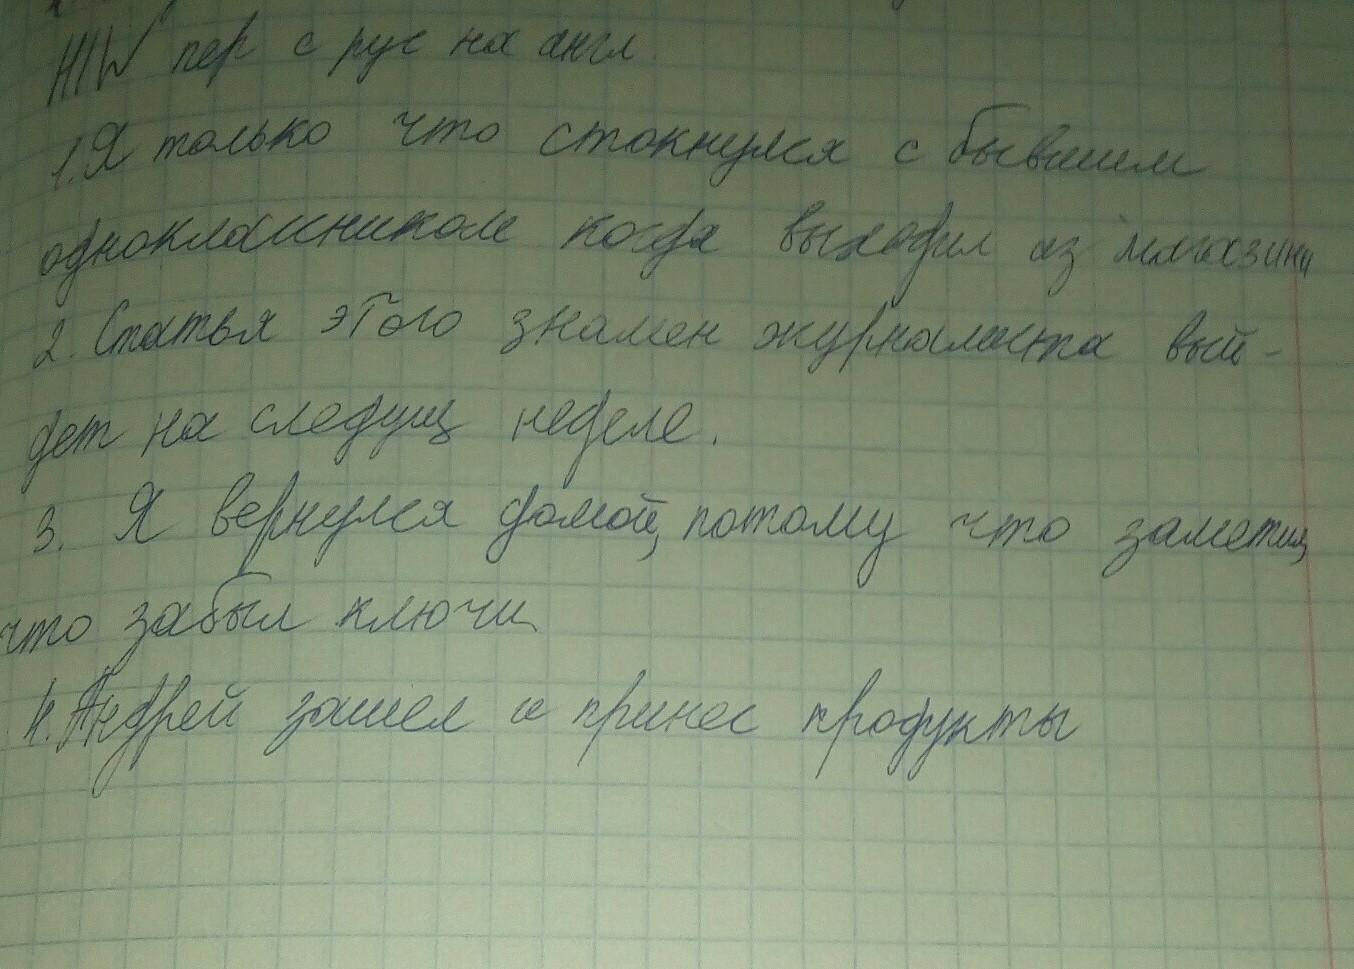 H/W пер с рус на англ.
1. Я только что стокнулся с бывшим
однокласником когда выходил из магазина
2. Статья этого знамен журналиста вый-
дет на следущ неделе.
3. Я вернулся домой, потому что заметил,
что забыл ключи
4. Андрей зашел и принес продукты